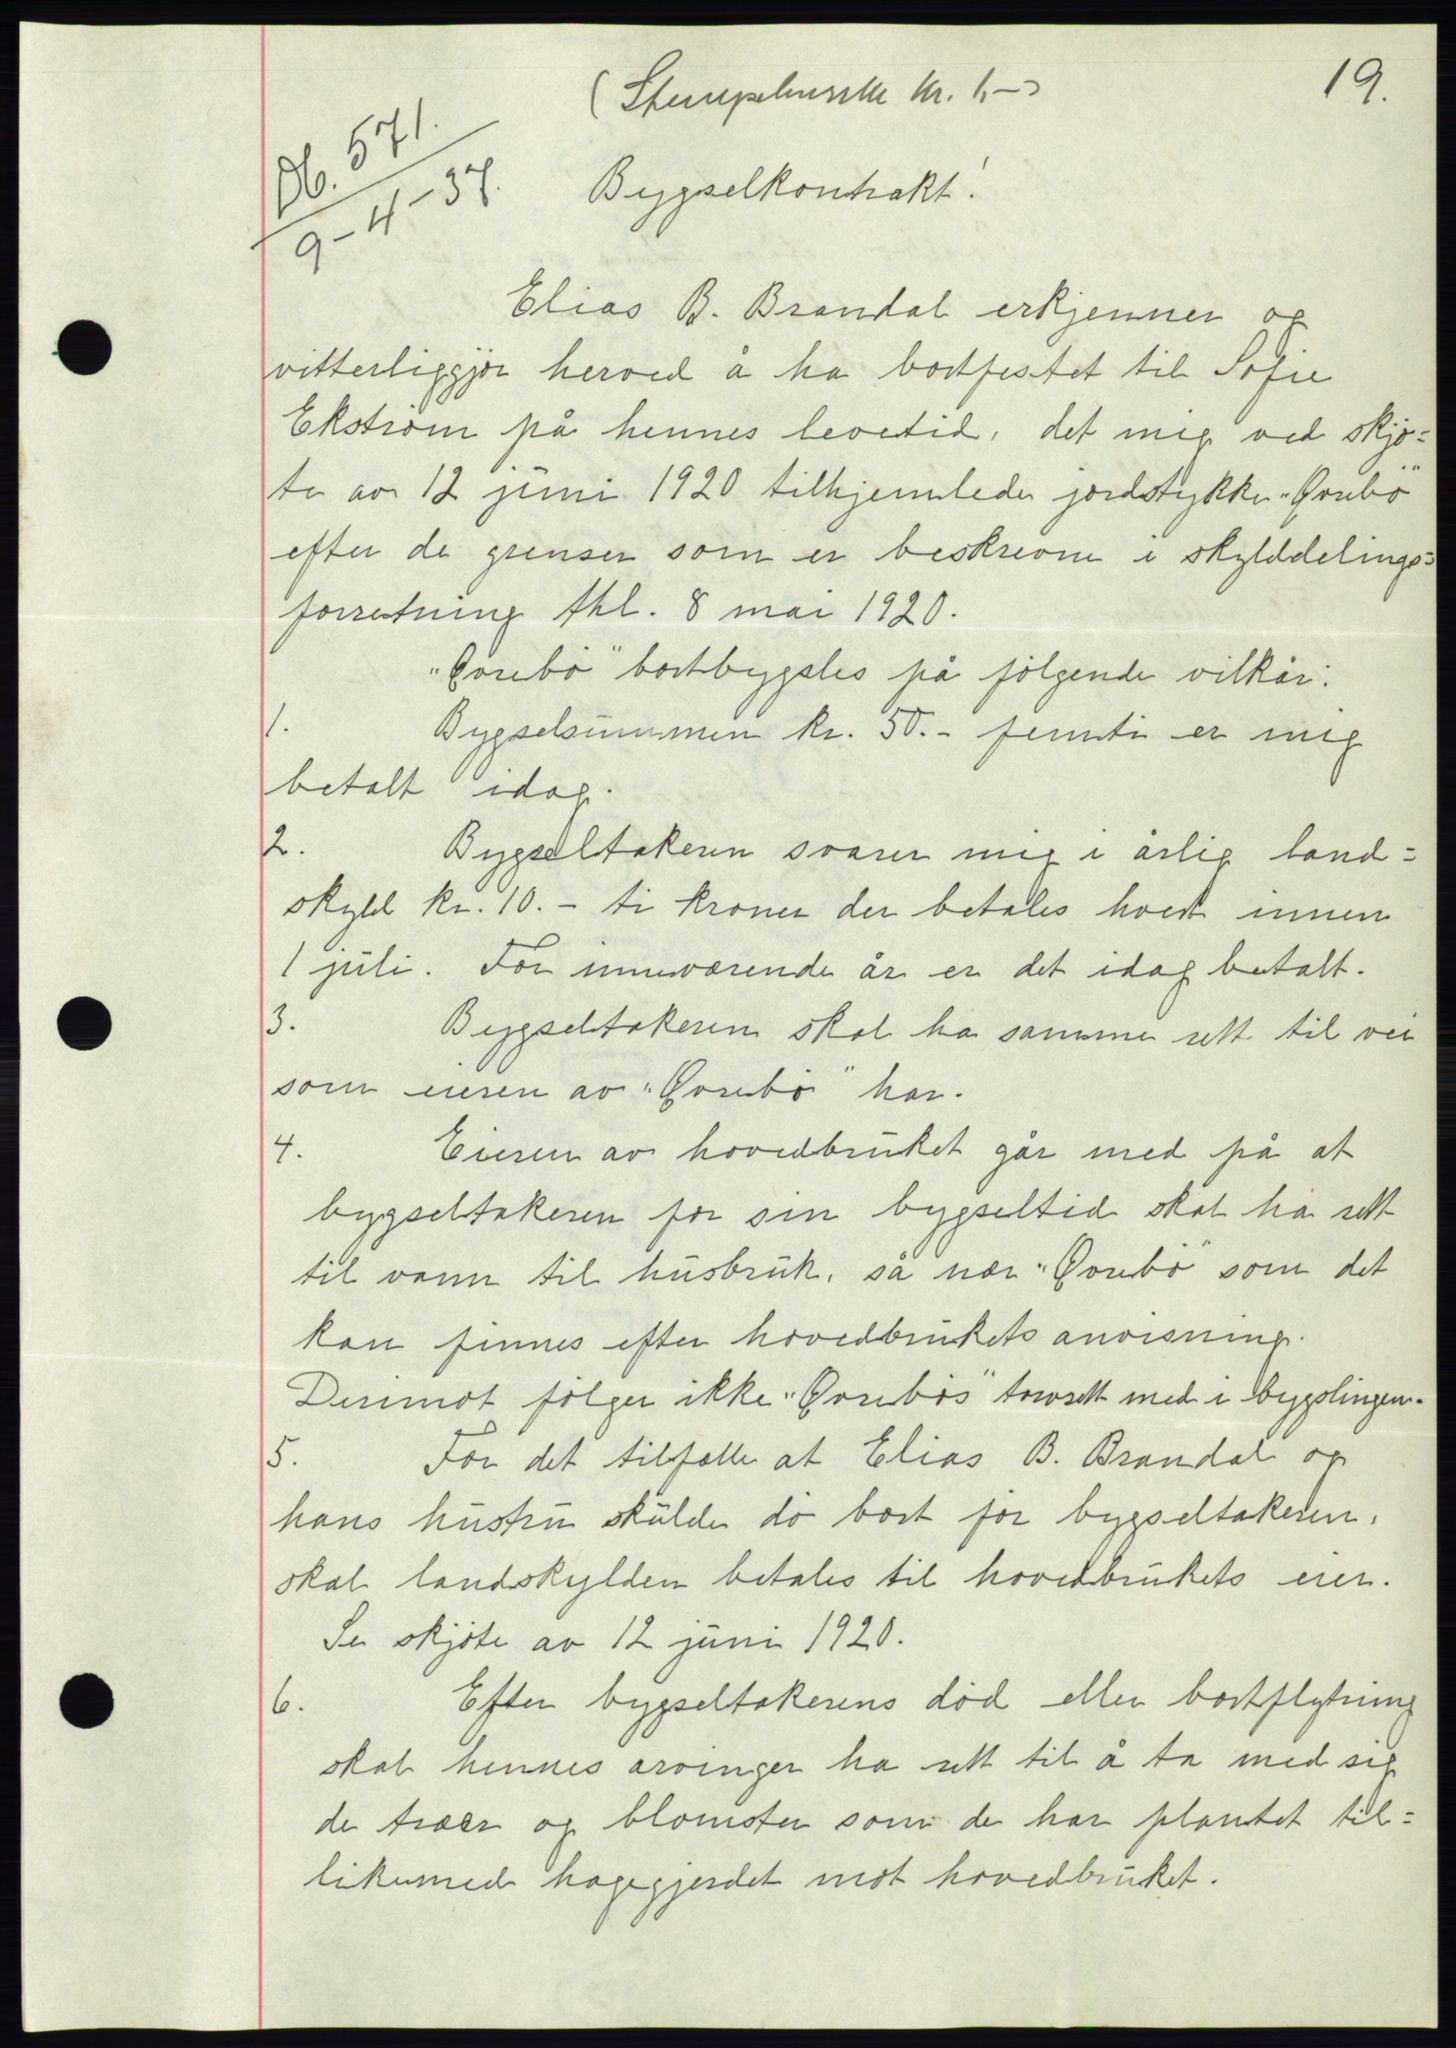 19.
(Stempelmerke kr. 1,-)
Db. 571.
9-4-37.
Bygselkontrakt!
Elias B. Brandal erkjenner og
vitterliggjör herved å ha bortfestet til Sofie
Ekström på hennes levetid, det mig ved skjö=
te av 12 juni 1920 tilhjemlede jordstykke "Övrebö"
efter de grenser som er beskrevne i skylddelings=
forretning thl. 8 mai 1920.
"Övrebö" bortbygsles på fölgende vilkår:
1. Bygselsummen kr. 50.- femti er mig
betalt idag.
2. Bygseltakeren svarer mig i årlig land=
skyld kr. 10.- ti kroner der betales hvert innen
1 juli. For inneværende år er det idag betalt.
3. Bygseltakeren skal ha samme rett til vei
som eieren av "Övrebö" har.
4. Eieren av hovedbruket går med på at
bygseltakeren for sin bygseltid skal ha rett
til vann til husbruk, så nær "Övrebö" som det
kan finnes efter hovedbrukets anvisning.
Derimot fölger ikke "Övrebös" torvrett med i bygslingen.
5. For det tilfælle at Elias B. Brandal og
hans hustru skulde dö bort för bygseltakeren,
skal landskylden betales til hovedbrukets eier.
Se skjöte av 12 juni 1920.
6. Efter bygseltakerens död eller bortflytning
skal hennes arvinger ha rett til å ta med sig
de træer og blomster som de har plantet til=
likemed hagegjerdet mot hovedbruket.